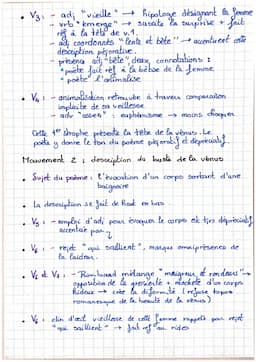 • V3 : - adj "vieille" → hypallage désignant la femme
- vrb "émerge" → suscite la surprise + fait
réf à la tête de v.1.
- adj coordonnés "lente et bête" → accentuent cette
description péjorative.
- présence adj "bête" deux connotations :
* poète fait réf à la bêtise de la femme
* poète l'animalise
• V4 : - animalisation retrouvée à travers comparaison
implicite de sa vieillesse
- adv "assez" : euphémisme → moins choquer
Cette 1ère strophe présente la tête de la vénus. Le
poète y donne le ton du poème péjoratif et dépréciatif.
Mouvement 2 : description du buste de la vénus
• Sujet du poème : l'évocation d'un corps sortant d'une
baignoire
• La description se fait de haut en bas
• V5 : - emploi d'adj pour évoquer le corps et très dépréciatif,
accentué par
• V6 : - rejet "qui saillient", marque omniprésence de
la laideur.
• V5 et V6 : - Rimbaud mélange "maigreur et rondeurs" →
opposition de la grossièreté + mocheté d'un corps
hideux → crée la difformité (refuse topos
romanesque de la beauté de la vénus)
• V6 : clin d'œil vieillesse de cette femme rappelé par rejet
"qui saillient" → fait réf au rides